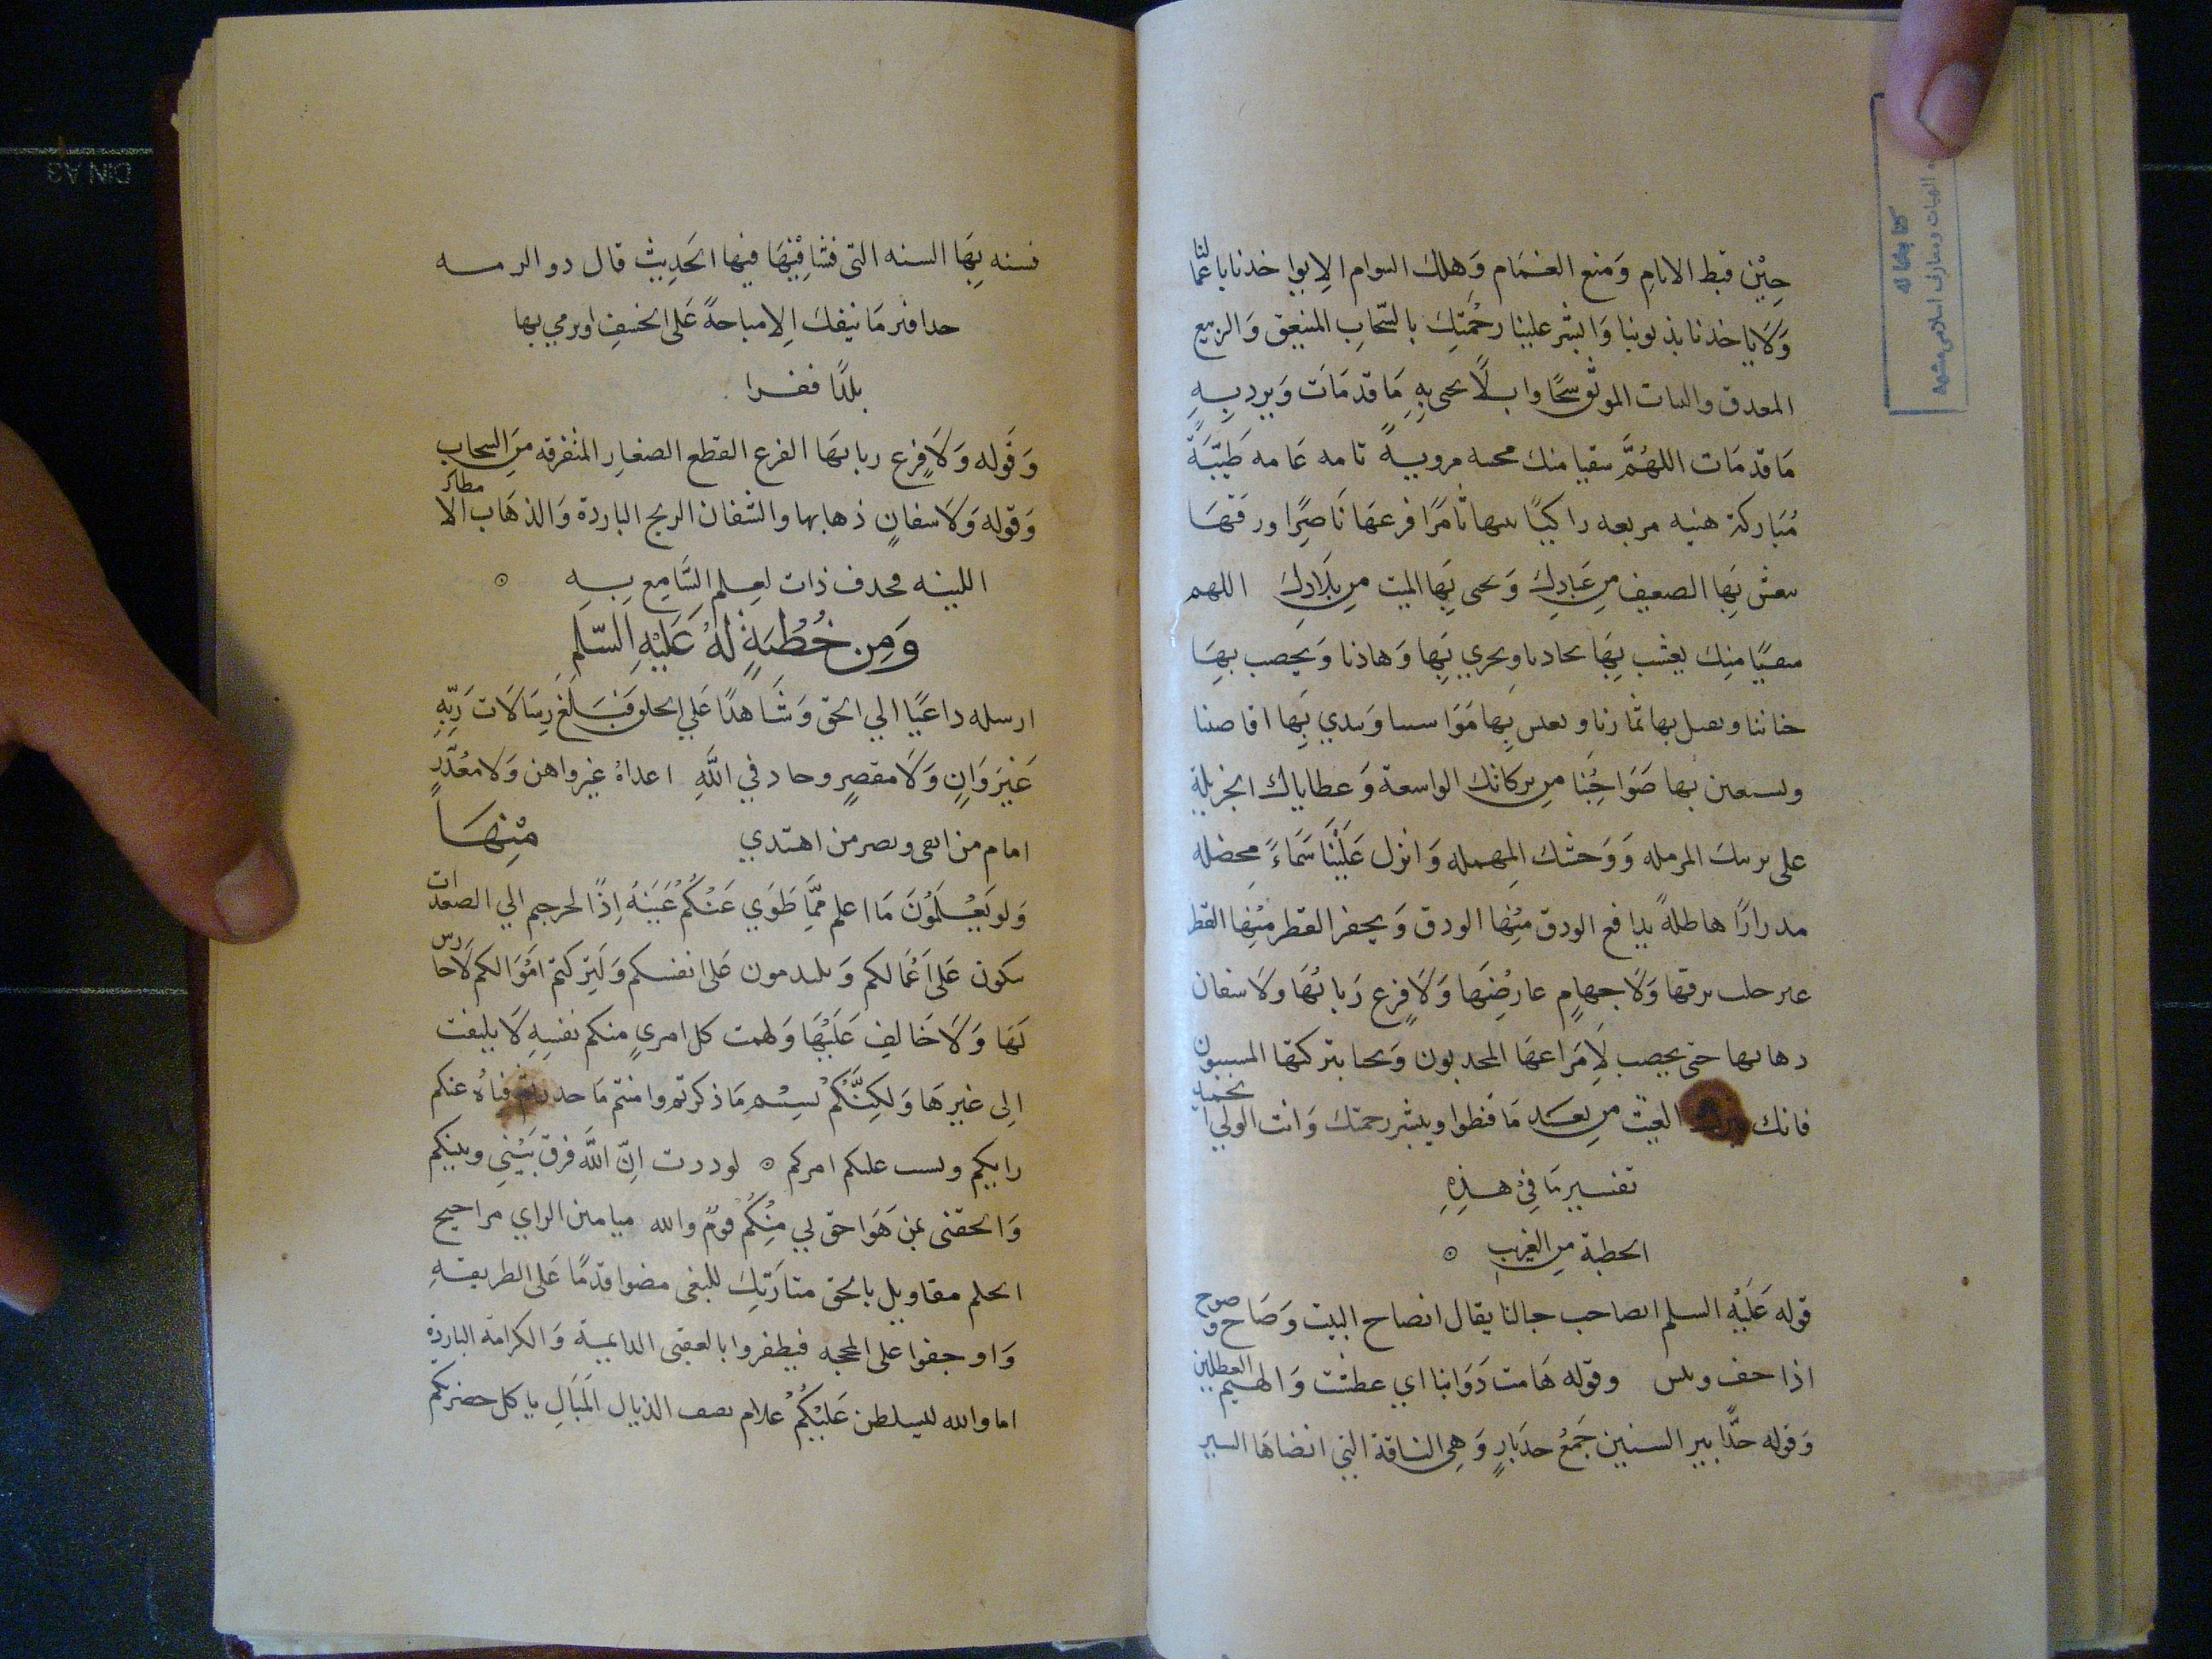 حِيْن قبط الانامِ وَمنع الغمَام وَهلك السوام الا بوا خدنا باعمَا لنا
وَلَا يا خذنا بذ نوبنا وَانشر علينا رحمتِك بالسّحابِ المنبعق وَالربيع
المعدق والنبات الموثق سحًّا وابلًا يحى بِهِ مَا قد مَات وَيرد بِهِ
مَا قد مَات اللهُمَّ سقيا منك محيه مرويةً تامه عَامه طَيّبَةً
مُبَاركة هنيه مريعه زاكيًا نبتها ثامرًا فرعهَا نَاضِرًا ورقهَا
تنعش بِهَا الضعيف مِن عَبَادِكَ وَتحى بِهَا الميت مِن بلَادِكَ اللهم
سقيًا منِك يعشب بِهَا نجادنا وتجري بِهَا وَهادنا وَيخصب بهَا
جنابنا وتقبل بها ثمارنا وتعيش بِها مَوَاشينا وَتندي بِهَا اقاصينا
وتستعين بها ضَوَاحِينَا مِن بركاتك الواسعة وَعطاياك الجزيلة
على بريتك المرمله وَوَحشك المهمله وَانزل عَلَيْنَا سَمَاءً مخضله
مدرارًا هاطلةً يدافع الودق مِنْها الودق وَيحفز القطر مِنْها القطر
غير خلب برقها وَلَا جهامٍ عارضِهَا وَلَا قزعٍ رَبابُهَا ولَا شفان
ذهابها حتى يخصب لَامَراعهَا المجدبون وَيحيا ببركتها المسنتون
فانك تنزل الغيث مِن بعد مَا قنطوا وينشر رحمتك وَانت الولي الحميد
تفسير مَا فِي هذِهِ
الخطبة مِن الغريب ⊙
قوله عَلَيْه السلم انصاحب جبالنا يقال انصاح النبت وَصَاح وصوح
اذا جف ويبس وقوله هَامت دَوَابنا اي عطشت وَالهيم العطاش
وَقوله حدَّابير السنين جَمعُ حدبارٍ وَهِي الناقة التي انضاها السير
فسنه بِهَا السنه التى فشا فِيْهَا فيها الحَدِيث قال ذو الرمه
حدابير مَا تنفك الا مناخةً عَلى الخسفِ او نرمي بها
بلدًا قفرا
وَقَوله وَلَا قزعٍ ربابهَا القزع القطع الصغارِ المتفرقه مِن السحاب
وَقوله وَلَا شفانٍ ذهابها والشفان الريح الباردة وَالذهَاب الامطار
اللينه فحذف ذات لعِلم السَّامِع بِهِ ⊙
وَمِن خُطْبَةٍ لهُ عَلَيْهِ السّلَم
ارسله داعيًا الي الحق وَشَاهدًا عَلي الخلق فَبَلَّغَ رِسَالَات رَبِّهِ
غَيْرَ وَانٍ وَلَا مقصرٍ وجاهد في اللَّهِ اعداهُ غير واهن وَلا معُذّرٍ
امام من اتقى وبصر من اهتدي مِنْهَا
وَلو يَعْلَمُوْنَ مَا اعلم ممَّا طَوَي عَنْكُمْ غَيَبَهُ اِذًا لخرجتم الي الصعدات
تبكون عَلى اَعْمَالكم وَتلتدمون عَلى انفسكم وَلَتِركتم امْوَالكم لَا حارس
لَهَا وَلَا خَالفِ عَلَيْهَا وَلهمت كل امريٍ منكم نفسِهِ لَا يلتفت
اِلى غيرهَا وَلكِنَّكُمْ نسِيْتم مَا ذكرتم وامنتم مَا حذرتم فتاهُ عنكم
رايكم وتشتت عليكم امركم ⊙ لوددت اِنّ اللَّه فرق بَيْني وبينكم
وَالحقنى بمن هَوَا حق لي مِنْكُمْ قومٌ والله ميامين الراي مراجيح
الحلم مقاويل بالحق متارِيك للبغى مضوا قدمًا عَلى الطريقهِ
وَاوجفوا على المحجه فيظفروا بالعقبى الدايمية وَالكرامة الباردة
اما والله ليسلطن عَلَيْكُمْ غلام ثقيف الذيال المَيَالِ ياكل خضرتكم
DIN A3
كتابخانه
الهيات ومعارف اسلامى مشهد